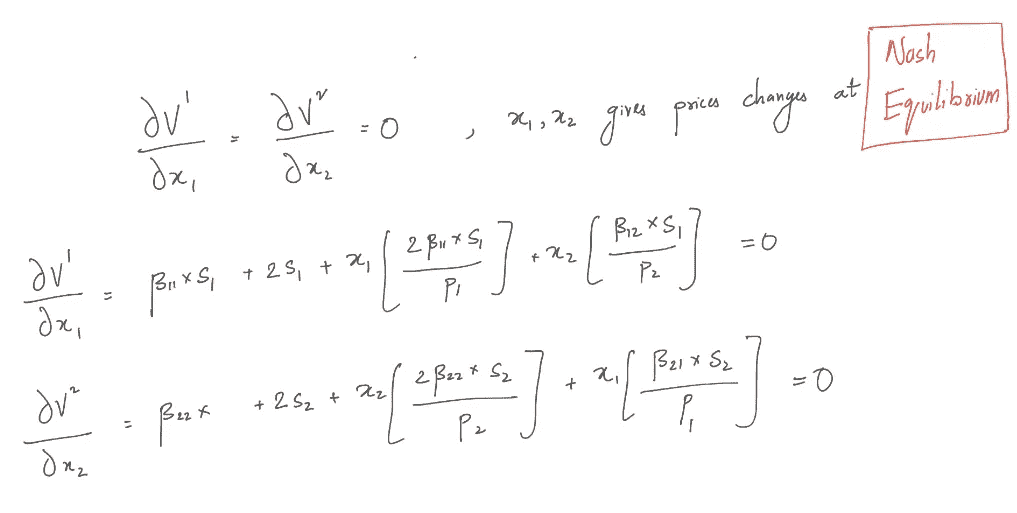 ∂V¹/∂x₁ = ∂V²/∂x₂ = 0 , x₁, x₂ gives prices changes at Nash Equilibrium
∂V¹/∂x₁ = β₁₁ × S₁ + 2S₁ + x₁ [ 2β₁₁ × S₁ / P₁ ] + x₂ [ β₁₂ × S₁ / P₂ ] = 0
∂V²/∂x₂ = β₂₂ × + 2S₂ + x₂ [ 2β₂₂ × S₂ / P₂ ] + x₁ [ β₂₁ × S₂ / P₁ ] = 0